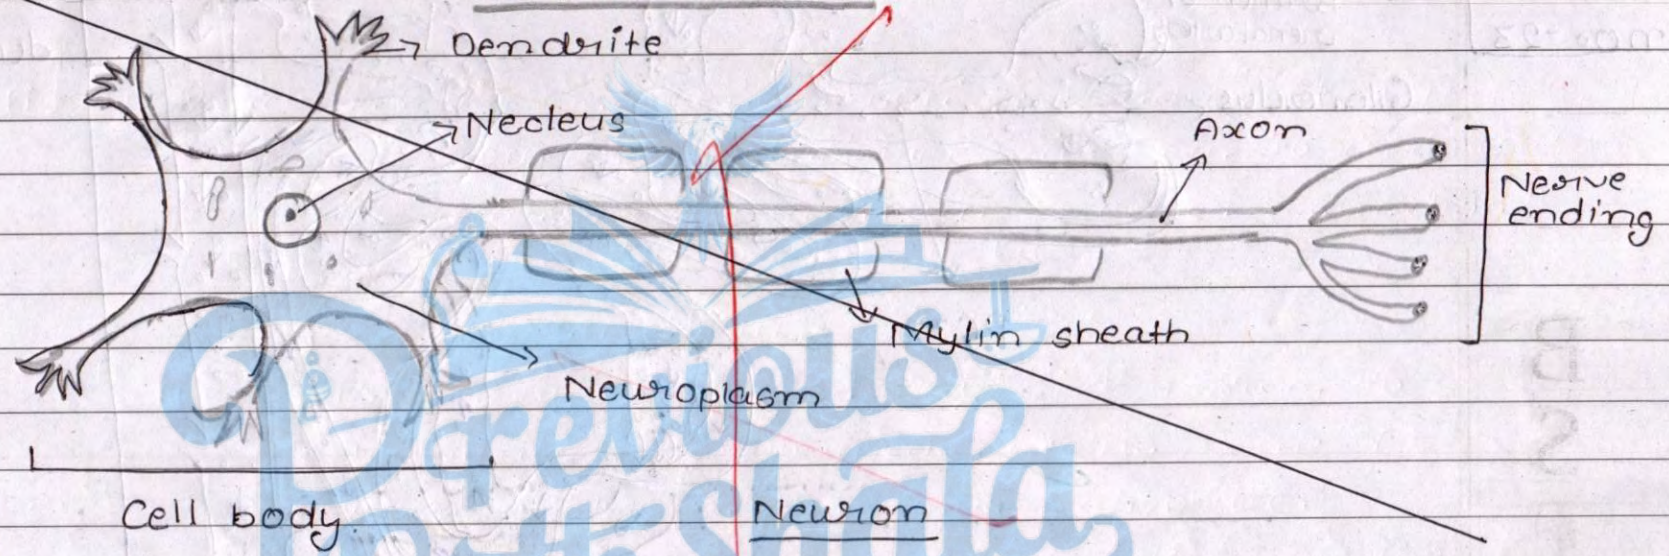 Dendrite
Necleus
Axon
Nerve
ending
Mylin sheath
Neuroplasm
Cell body
Neuron
Previous